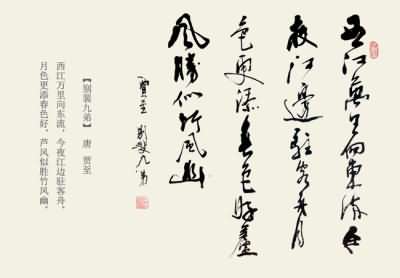 西江萬里向東流今
夜江邊駐客舟月
色更添春色好蘆
風勝似竹風幽
賈至 别裴九弟
【别裴九弟】 唐 贾至
西江万里向东流，今夜江边驻客舟，
月色更添春色好，芦风似胜竹风幽。